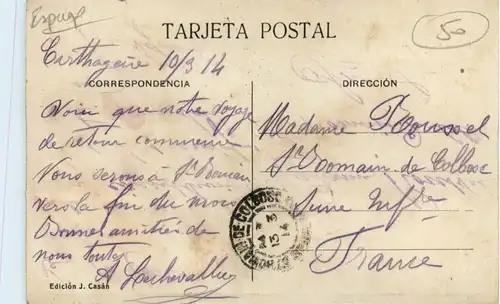 Espagne
50
TARJETA POSTAL
Carthagène 10/3 14
CORRESPONDENCIA
DIRECCIÓN
Voici que notre voyage
de retour commence
Nous serons à St Romain
vers la fin du mois
Bonnes amitiés de
nous tous
A Lechevallier
Madame Roussel
St Romain de Colbosc
Seine Infre
France
DE COLBOSC
13 3
14
Edición J. Casáu